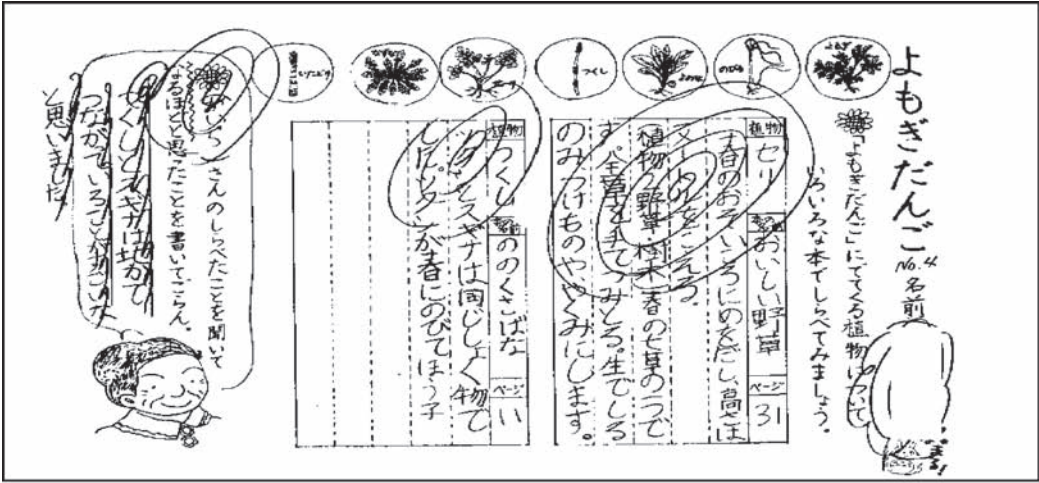 よもぎだんご No.4 名前
「よもぎだんご」にでてくる植物について
いろいろな本でしらべてみましょう。
よもぎ
のびる
つくし
いたどり
植物 セリ 本の名前 おいしい野草 ページ 31
春のおそいころにめをだし、高さは
をこえる。
植物の野草・樹木 春の七草の一つで
す。全草を手でつみとる。生でしる
のみつけものや、やくみにします。
植物 つくし 本の名前 ののくさばな ページ 11
ツクシとスギナは同じしょく物で
が春にのびてほう子
さんのしらべたことを聞いて
なるほどと思ったことを書いてごらん。
つくしとスギナは地下で
つながっているって
と思いました。
まる!